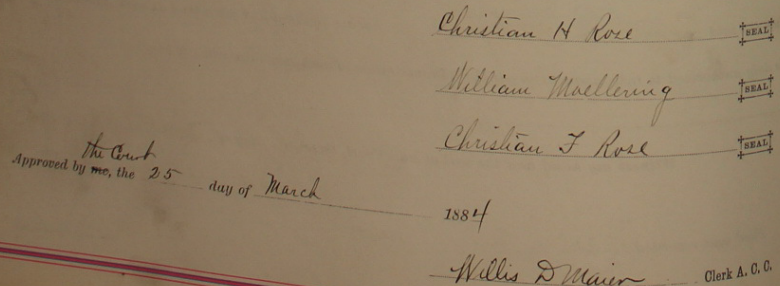 Christian H Rose SEAL
William Moellering SEAL
Christian F Rose SEAL
the Court
Approved by me, the 25 day of March 1884
Willis D Maier Clerk A. C. C.